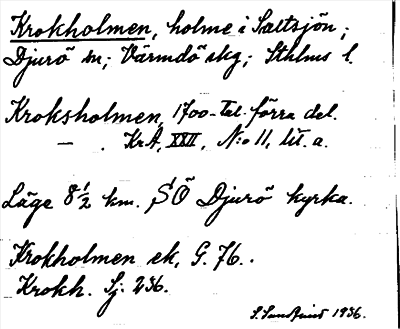 Krokholmen, holme i Saltsjön;
Djurö sn; Värmdö skg; Sthlms l.
Kroksholmen, 1700-tal. förra del.
— . KrA, XXII, N:o 11, lit. a.
Läge 8 1/2 km. SÖ Djurö kyrka.
Krokholmen ek, G. 76.
Krokh. Sj: 236.
S. Sundqvist 1936.